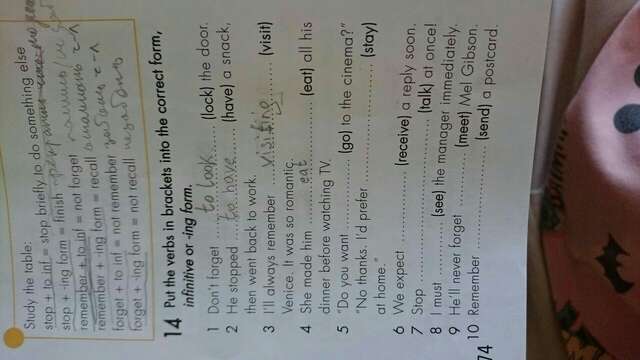 Study the table.
stop + to inf = stop briefly to do something else
stop + -ing form = finish
remember + to inf = not forget
remember + -ing form = recall
forget + to inf = not remember
forget + -ing form = not recall
14 Put the verbs in brackets into the correct form,
infinitive or -ing form.
1 Don't forget ..to lock.. (lock) the door.
2 He stopped ..to have.. (have) a snack,
then went back to work.
3 I'll always remember ..visiting.. (visit)
Venice. It was so romantic.
4 She made him ..eat.. (eat) all his
dinner before watching TV.
5 "Do you want .......... (go) to the cinema?"
"No thanks. I'd prefer .......... (stay)
at home."
6 We expect .......... (receive) a reply soon.
7 Stop .......... (talk) at once!
8 I must .......... (see) the manager immediately.
9 He'll never forget .......... (meet) Mel Gibson.
10 Remember .......... (send) a postcard.
74